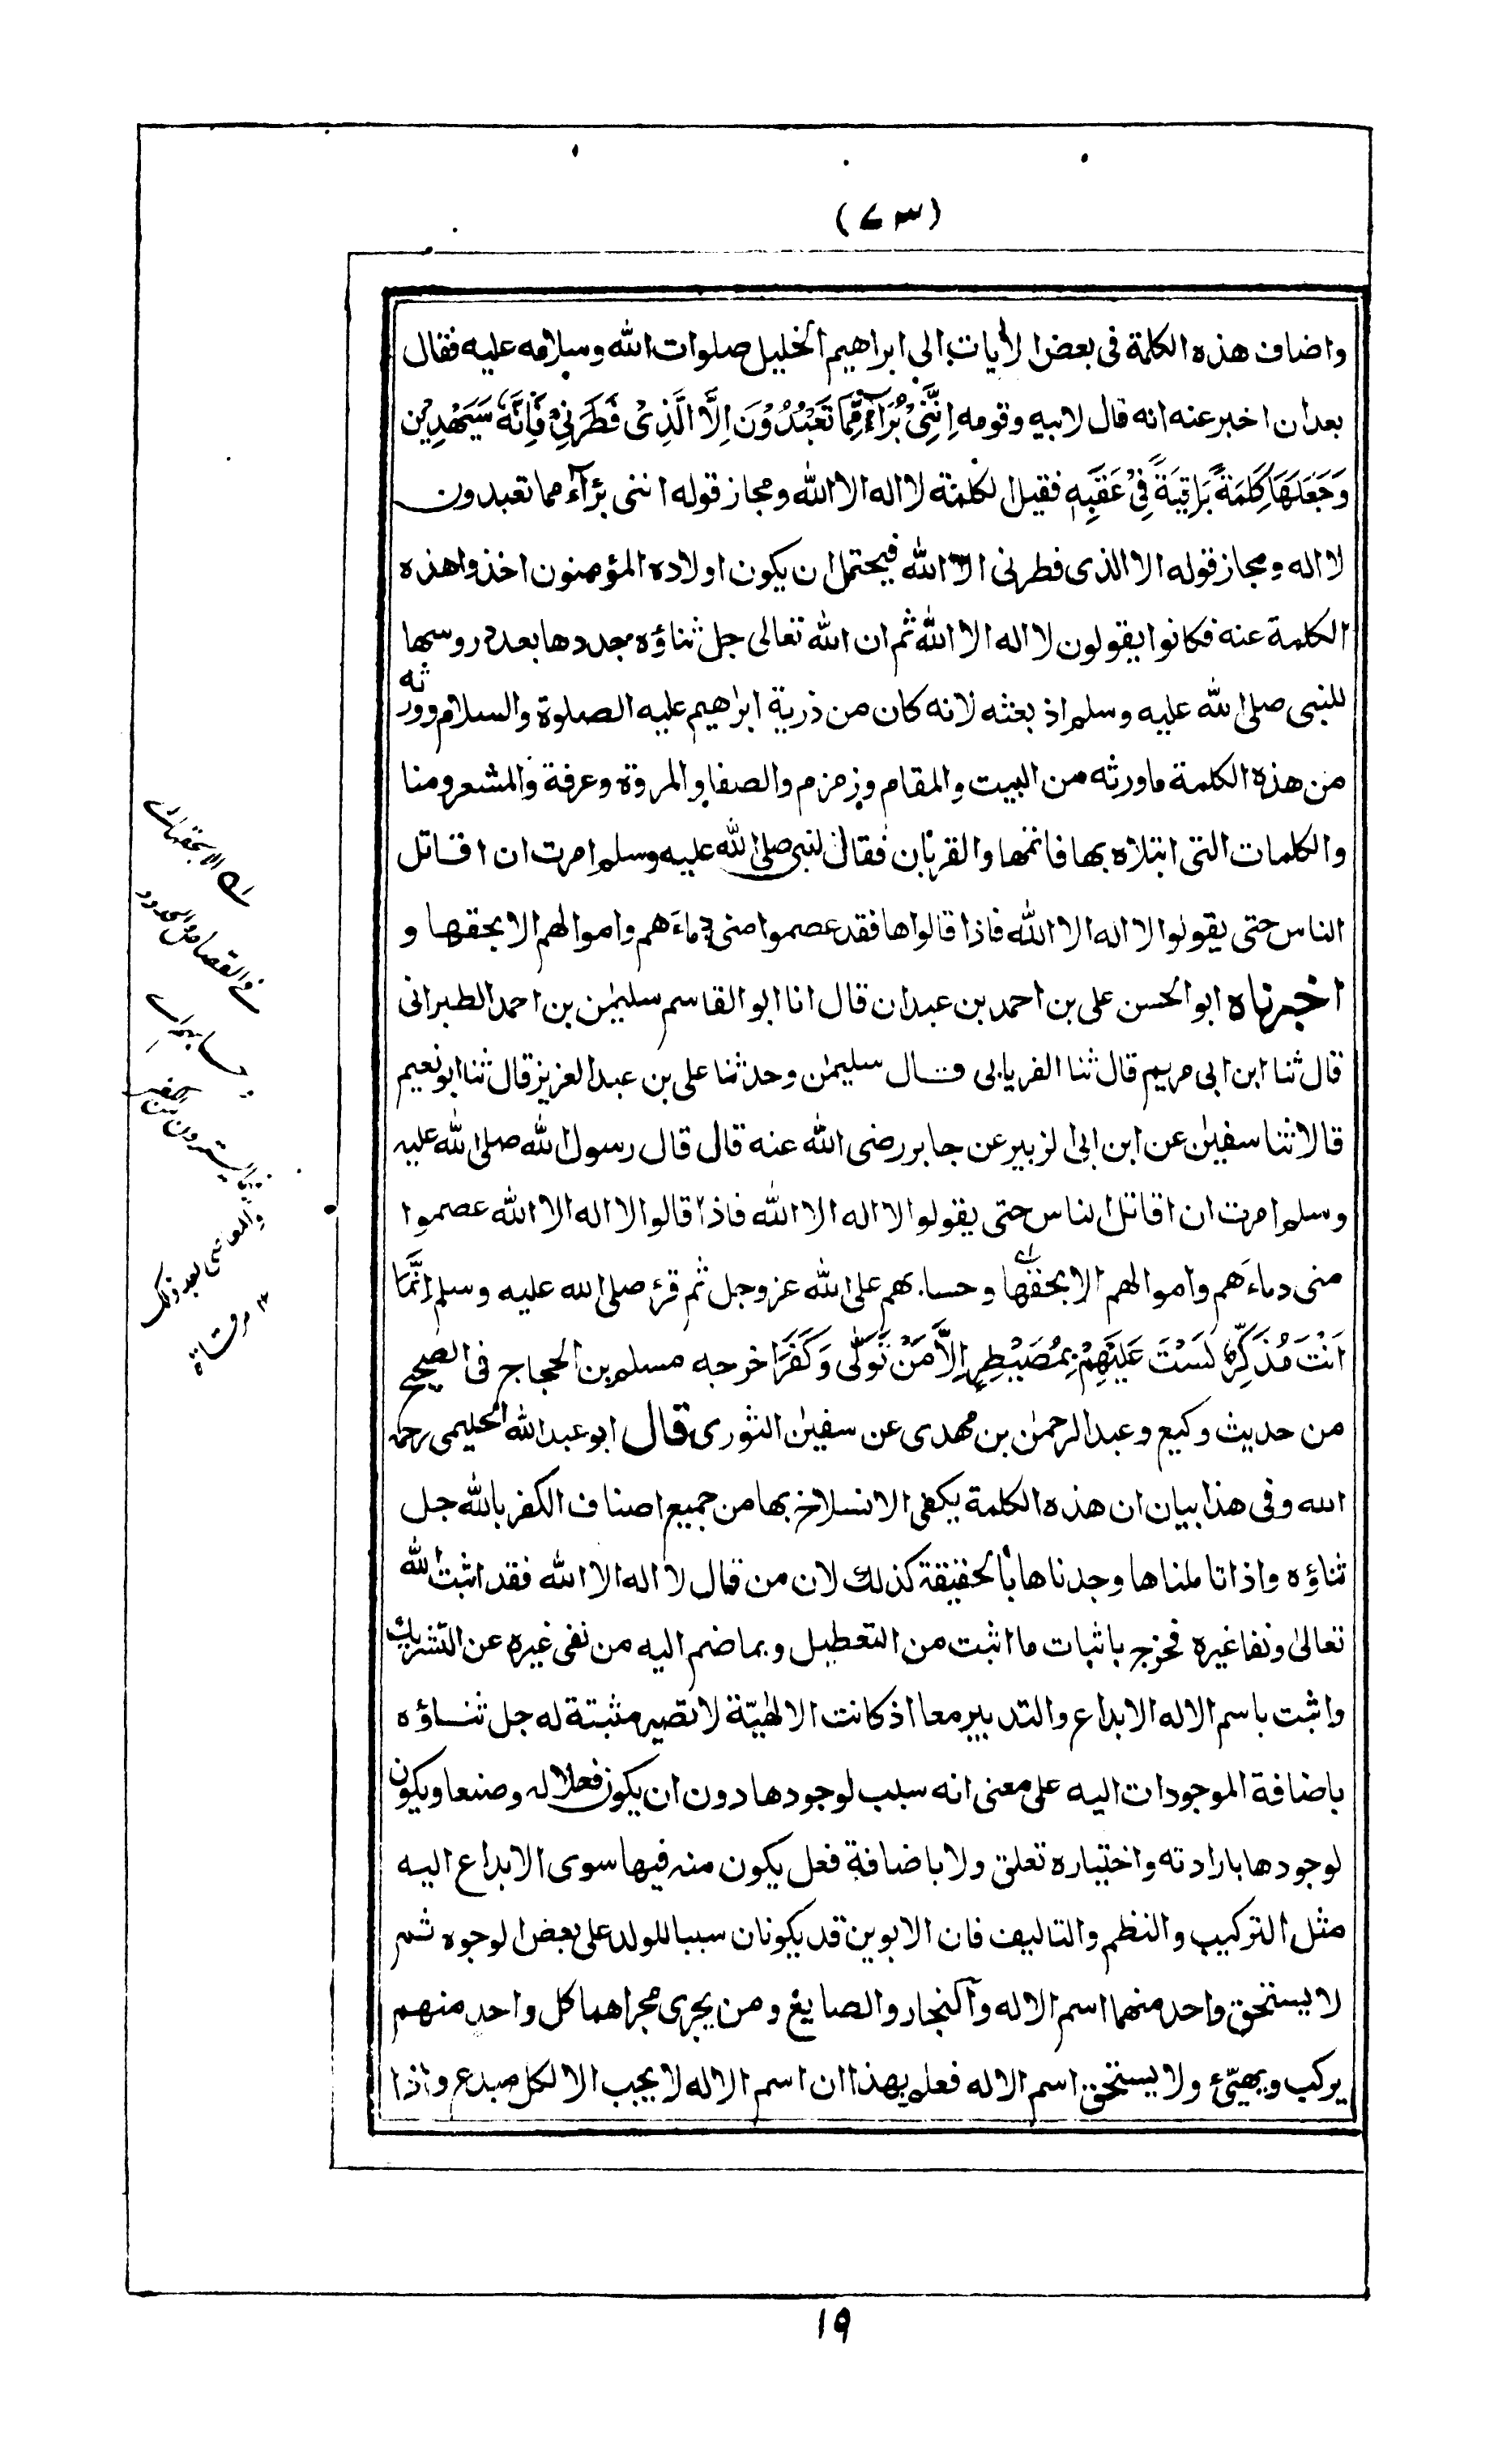 (٧٣)
واضاف هذه الكلمة فى بعض الأيات الى ابراهيم الخليل صلوات الله وسلامه عليه فقال
بعد ان اخبر عنه انه قال لابيه وقومه اِنَّنِىْ بُرَآءٌ مِّمَّا تَعْبُدُوْنَ اِلَّا الَّذِىْ فَطَرَنِىْ فَاِنَّهٗ سَيَهْدِيْن
وَجَعَلَهَا كَلِمَةً بَاقِيَةً فِىْ عَقَبِهٖ فقيل الكلمة لا اله الا الله ومجاز قوله اننى برآء مما تعبدون
لا اله ومجاز قوله الا الذى فطرنى الا الله فيحتمل ان يكون اولاده المؤمنون اخذوا هذه
الكلمة عنه فكانوا يقولون لا اله الا الله ثم ان الله تعالى جل ثناؤه جددها بعد دروسها
للنبى صلى الله عليه وسلم اذ بعثه لانه كان من ذرية ابراهيم عليه الصلوة والسلام وورثه
من هذه الكلمة ماورثه من البيت والمقام وزمزم والصفا والمروة وعرفة والمشعر ومنا
والكلمات التى ابتلاه بها فاتمها والقربان فقال النبى صلى الله عليه وسلم امرت ان اقاتل
الناس حتى يقولوا لا اله الا الله فاذا قالوها فقد عصموا منى دماءَهم واموالهم الا بحقها و
اخبرناه ابو الحسن على بن احمد بن عبدان قال انا ابو القاسم سليمٰن بن احمد الطبرانى
قال ثنا ابن ابى مريم قال ثنا الفريابى قال سليمٰن وحدثنا على بن عبد العزيز قال ثنا ابو نعيم
قالا ثنا سفيٰن عن ابن ابى الزبير عن جابر رضى الله عنه قال قال رسول الله صلى الله عليه
وسلم امرت ان اقاتل الناس حتى يقولوا لا اله الا الله فاذا قالوا لا اله الا الله عصموا
منى دماءَهم واموالهم الا بحقها وحسابهم على الله عز وجل ثم قرئ صلى الله عليه وسلم اِنَّمَا
اَنْتَ مُذَكِّرٌ لَسْتَ عَلَيْهِمْ بِمُصَيْطِرٍ اِلَّا مَنْ تَوَلّٰى وَكَفَرَ اخرجه مسلم بن الحجاج فى الصحيح
من حديث وكيع وعبد الرحمٰن بن مهدى عن سفيٰن الثورى قال ابو عبد الله الحليمى رحمه
الله وفى هذا بيان ان هذه الكلمة يكفى الانسلاخ بها من جميع اصناف الكفر بالله جل
ثناؤه واذا تاملناها وجدناها بالحقيقة كذلك لان من قال لا اله الا الله فقد اثبت الله
تعالىٰ ونفا غيره فخرج باثبات ما اثبت من التعطيل وبما ضم اليه من نفى غيره عن التشريك
واثبت باسم الاله الابداع والتدبير معا اذ كانت الالٰهيّة لا تصير مثبتة له جل ثناؤه
باضافة الموجودات اليه على معنى انه سبب لوجودها دون ان يكون فعلا له وصنعا ويكون
لوجودها بارادته واختياره تعلق ولا باضافة فعل يكون منه فيها سوى الابداع اليه
مثل التركيب والنظم والتاليف فان الابوين قد يكونان سببا للولد على بعض الوجوه ثم
لا يستحق واحد منهما اسم الاله والنجار والصايغ ومن يجرى مجراهما كل واحد منهم
يركب ويهيّئ ولا يستحق اسم الاله فعلم بهذا ان اسم الاله لا يجب الا لكل مبدع واذا
والمعاصى بعد ذلك
١٢ مرقاة
١٩